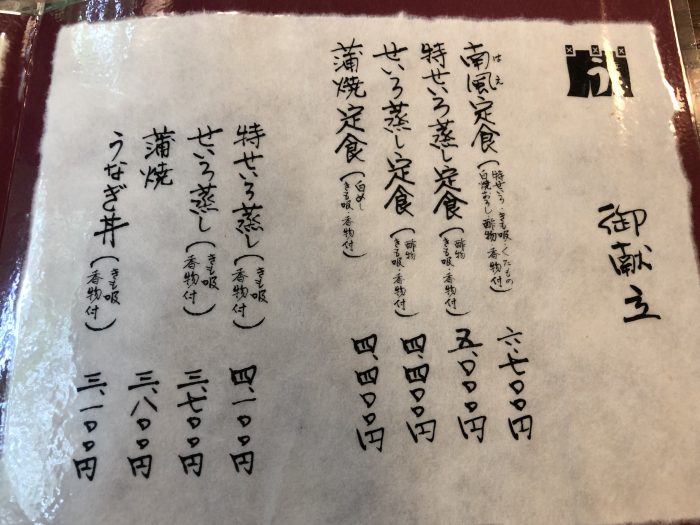 う
御献立
南風定食（特せいろ・きも吸・くだもの 白焼おろし 酢物・香物付） 六、七〇〇円
はえ
特せいろ蒸し定食（酢物 きも吸・香物付） 五、〇〇〇円
せいろ蒸し定食（酢物 きも吸・香物付） 四、四〇〇円
蒲焼定食（白めし きも吸・香物付） 四、四〇〇円
特せいろ蒸し（きも吸 香物付） 四、一〇〇円
せいろ蒸し（きも吸 香物付） 三、七〇〇円
蒲焼 三、八〇〇円
うなぎ丼（きも吸 香物付） 三、一〇〇円